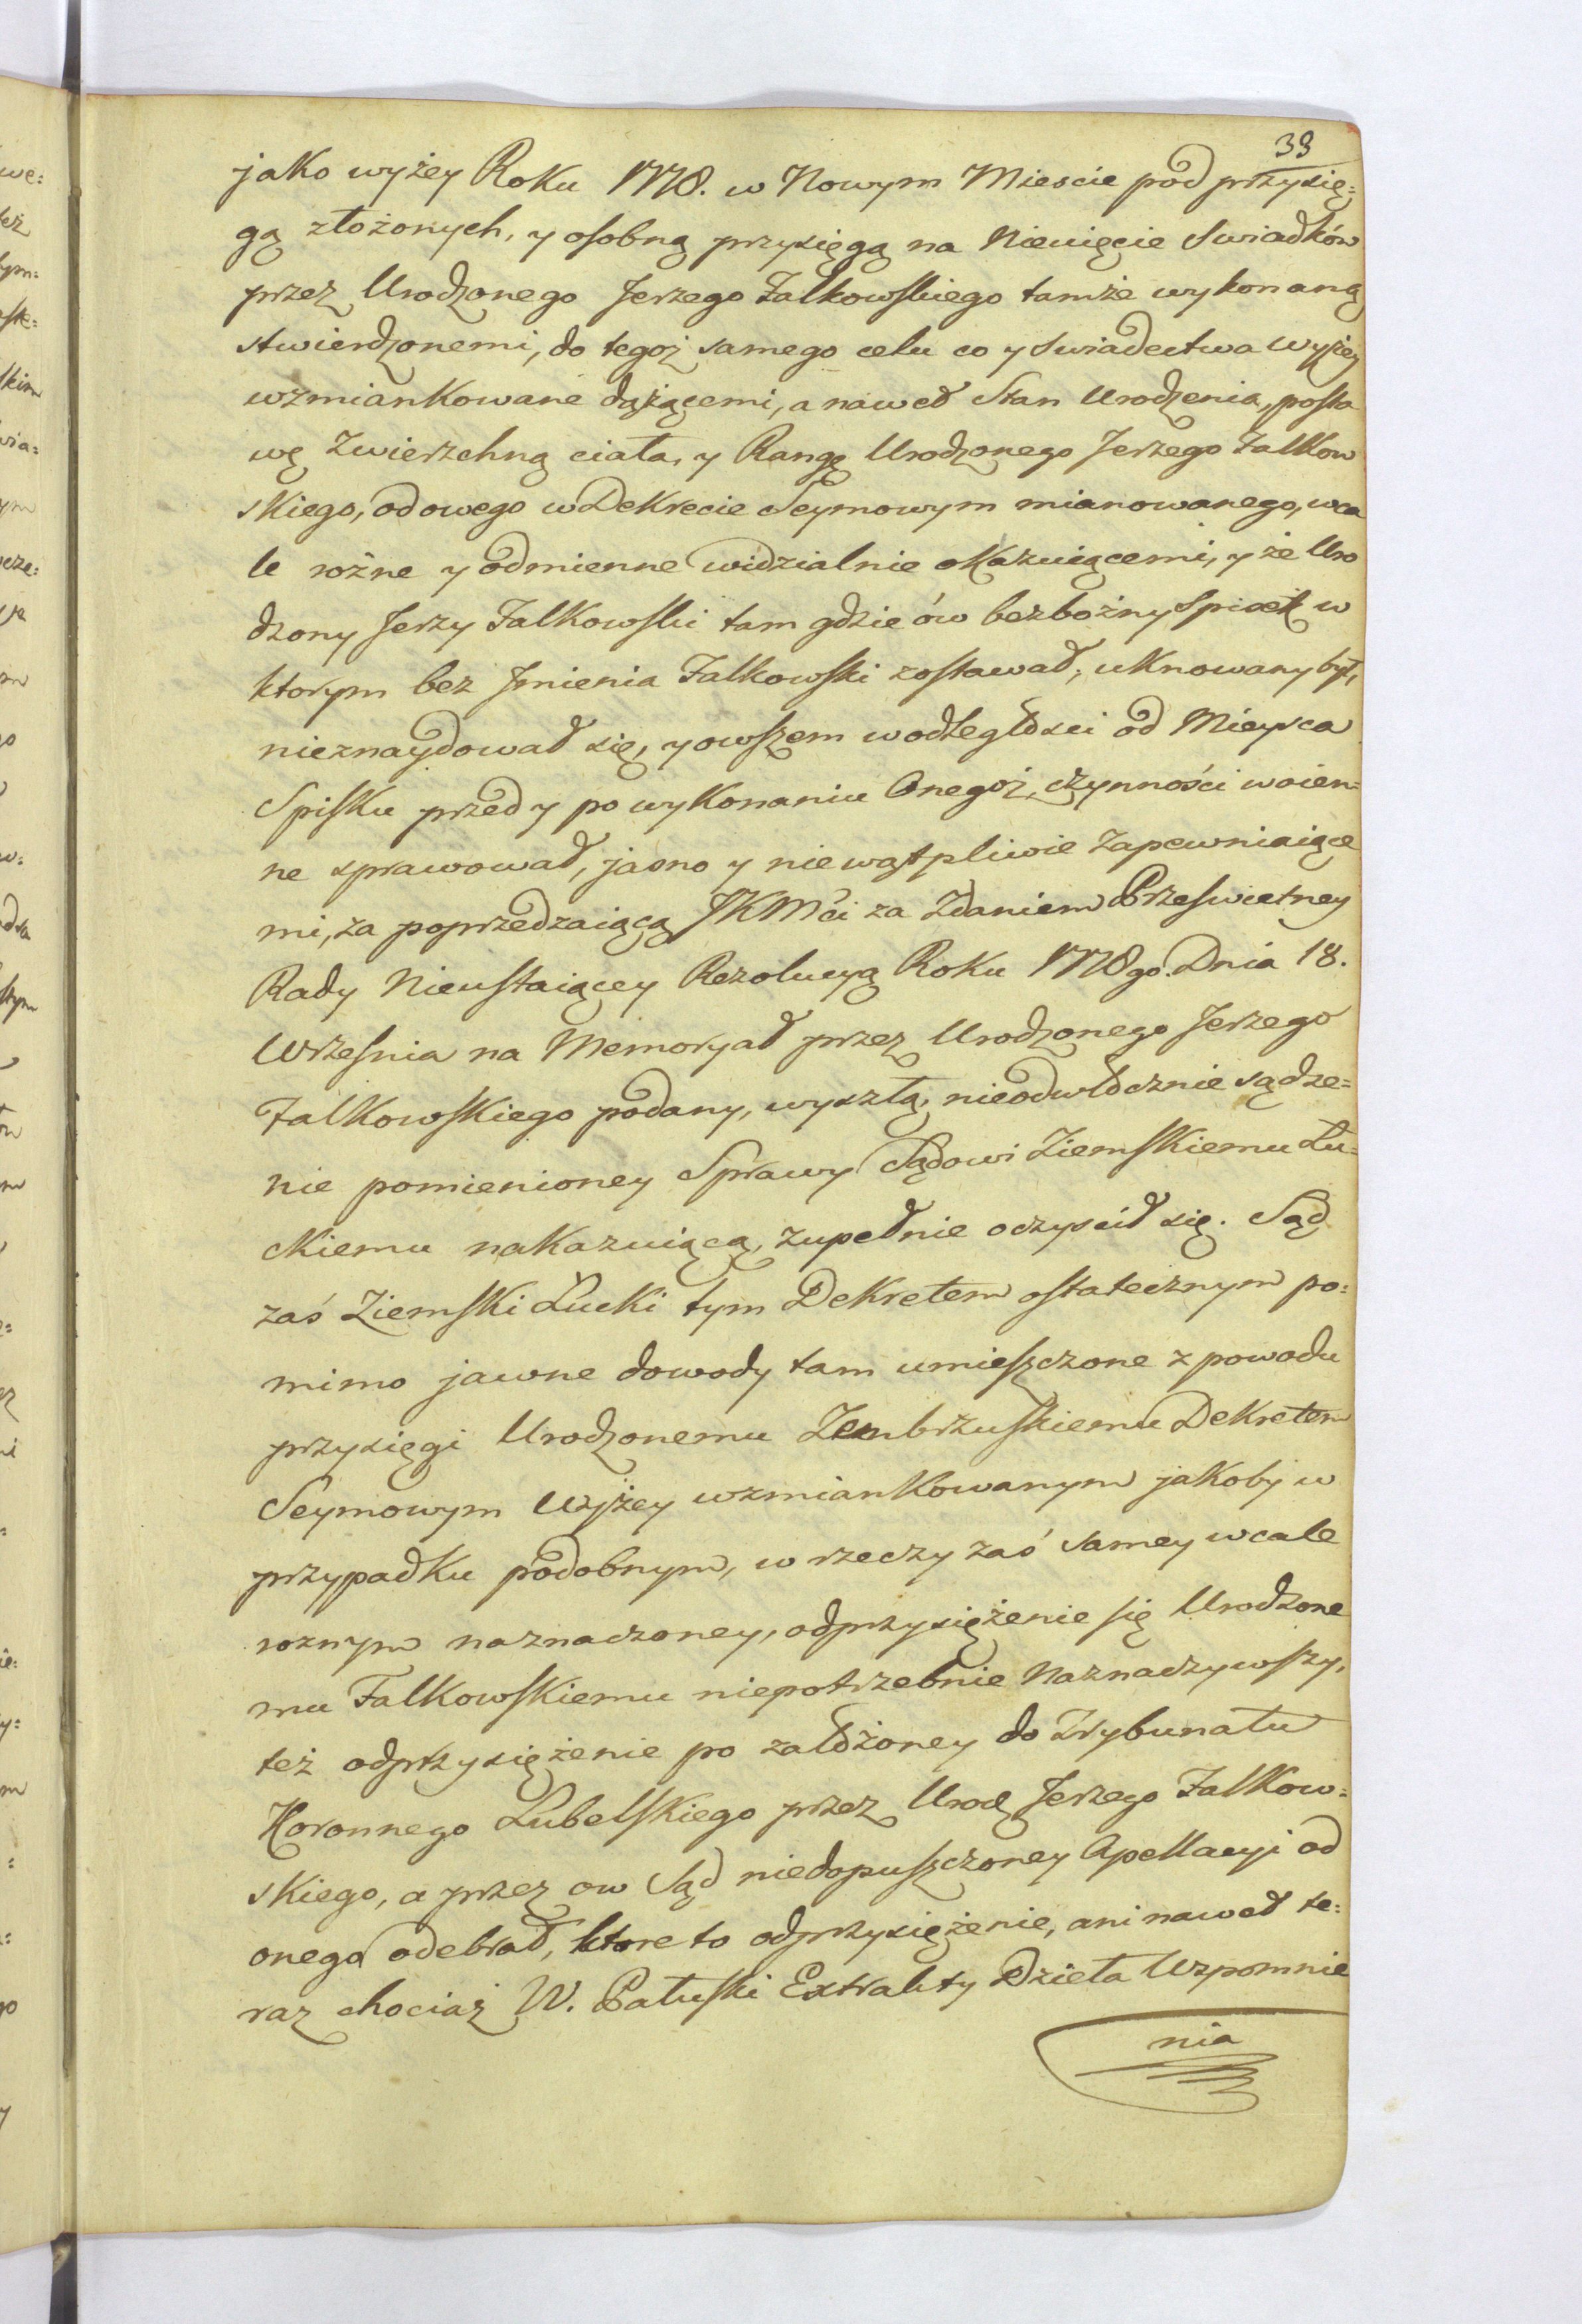 39
jako wyżey Roku 1778. w Nowym Miescie pod przysię:
gą złożonych, y osobną przysięgą na Niewięcie Swiadków
przez Urodzonego Jerzego Falkowskiego tamże wykonaną
stwierdzonemi, do tegoż samego celu co y swiadectwa wyżey
wzmiankowane dążącemi, a naweł Stan Urodzenia, posta
wę Zwierzchną ciała, y Rangę Urodzonego Jerzego Falkow
skiego, od owego w Dekrecie Seymowym mianowanego, wca
le rożne y odmienne widzialnie okazuiącemi, y że Uro
dzony Jerzy Falkowski tam gdzie ów bezbożny Spisek w
ktorym bez Jmienia Falkowski zostawał, uknowany był,
nieznaydował się, y owszem w odległości od Mieysca
Spisku przed y po wykonaniu Onegoż, czynności woien=
ne sprawował, jasno y niewątpliwie zapewniaiące
mi, za poprzedzaiącą JKMći za Zdaniem Przeswietney
Rady Nieustaiącey Rezolucyą Roku 1778go. Dnia 18.
Wrzesnia na Memoryał przez Urodzonego Jerzego
Falkowskiego podany, wyszłą, nieodwłocznie sądze=
nie pomienioney Sprawy Sądowi Ziemskiemu Łu=
ckiemu nakazuiącą, zupełnie oczyscił się. Sąd
zaś Ziemski Łucki tym Dekretem ostatecznym po:
mimo jawne dowody tam umieszczone z powodu
przysięgi Urodzonemu Zembrzuskiemu Dekretem
Seymowym Wyżey wzmiankowanym jakoby w
przypadku podobnym, w rzeczy zaś samey wcale
roznym naznaczoney, odprzysiężenie się Urodzone
mu Falkowskiemu niepotrzebnie Naznaczywszy,
też odprzysiężenie po założoney do Trybunału
Koronnego Lubelskiego przez Urodz Jerzego Falkow=
skiego, a przez ow Sąd niedopuszczoney Apellacyi od
onego odebrał, ktore to odprzysiężenie, ani naweł te:
raz chociaż W. Pałuski Extrakty Dzieła Wspomnie
nia